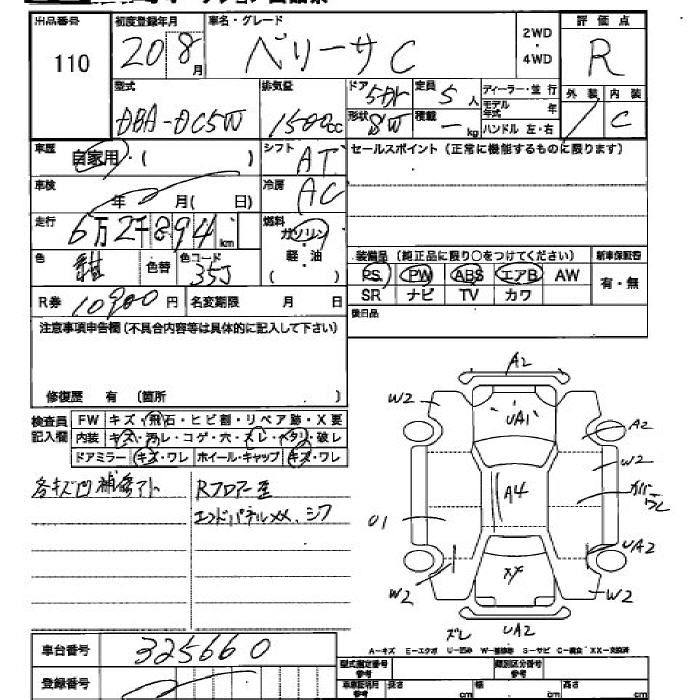 出品番号 初度登録年月 車名・グレード 2WD・4WD 評価点
110 20 8月 ベリーサC R
型式 排気量 ドア 5DR 定員 5人 ディーラー・並行 外装 内装
DBA-DC5W 1500cc 形状 SW 積載 ー kg モデル年式 年 ハンドル 左・右 C
車歴 自家用・( ) シフト AT セールスポイント (正常に機能するものに限ります)
車検 年 月( 日) 冷房 AC
走行 6万2千894km 燃料 ガソリン
色 紺 色替 色コード 35J 軽・油 ( ) 装備品 (純正品に限り○をつけてください) 新車保証書
PS PW ABS エアB AW 有・無
R券 10900円 名変期限 月 日 SR ナビ TV カワ
注意事項申告欄(不具合内容等は具体的に記入して下さい) 後日品
修復歴 有 (箇所 )
検査員記入欄 FW キズ・飛石・ヒビ割・リペア跡・X要
内装 キズ・汚レ・コゲ・穴・スレ・ヘタリ・破レ
ドアミラー キズ・ワレ ホイール・キャップ キズ・ワレ
各キズ凹 補修アト Rフロアー歪
エンドパネルXX、シワ
A2
W2 UA1 A2
W2
A4 カバーワレ
01
UA2
W2 XX W2
ズレ UA2
A-キズ E-エクボ U-凹み W-補修跡 S-サビ C-腐食 XX-交換済
車台番号 325660
登録番号 型式指定番号 参考 類別区分番号 参考
車車証明用 参考 長さ cm 幅 cm 高さ cm